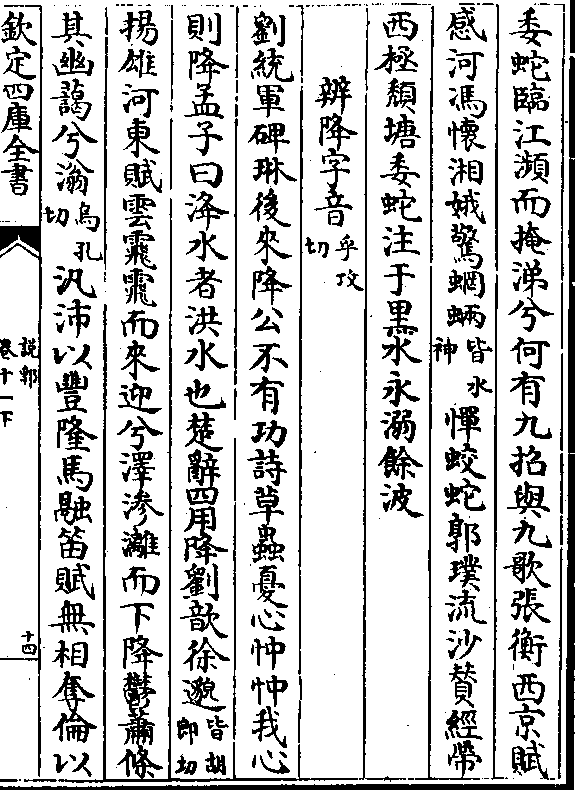 委蛇臨江濵而掩涕兮何有九招與九歌張衡西京賦
感河馮懷湘娥驚蝄蜽皆水神憚蛟蛇郭璞流沙賛經帶
西極頽塘委蛇注于黒水永溺餘波
辨降字音乎攻切
劉統軍碑琳後來降公不有功詩草蟲憂心忡忡我心
則降孟子曰洚水者洪水也楚辭四用降劉歆徐邈皆胡郎切
揚雄河東賦雲霏霏而來迎兮澤滲灕而下降鬱蕭條
其幽藹兮滃烏孔切汎沛以豐隆馬融笛賦無相奪倫以
欽定四庫全書
説郛
卷十一下
十四